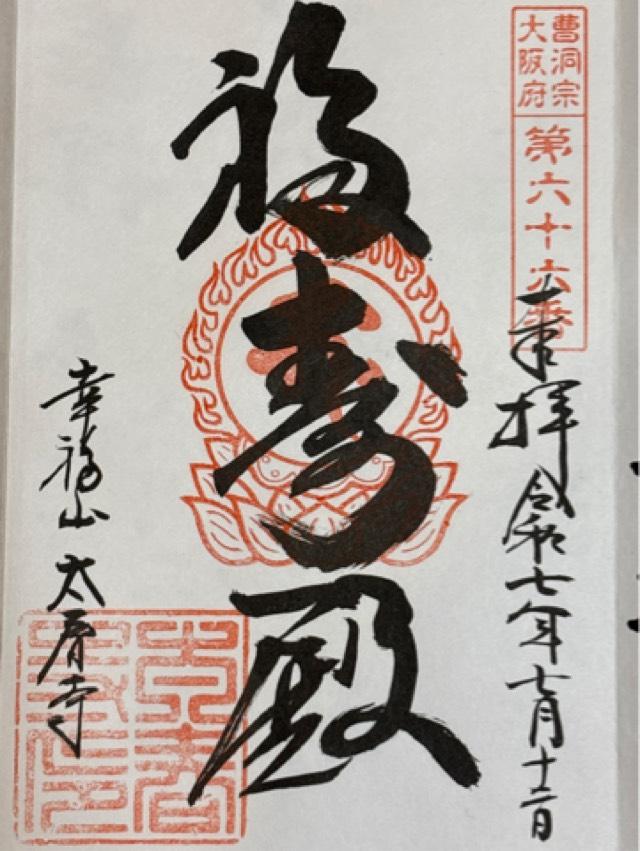 曹洞宗
大阪府
第六十六番
奉拝 令和七年七月十二日
福寿殿
幸福山 太春寺